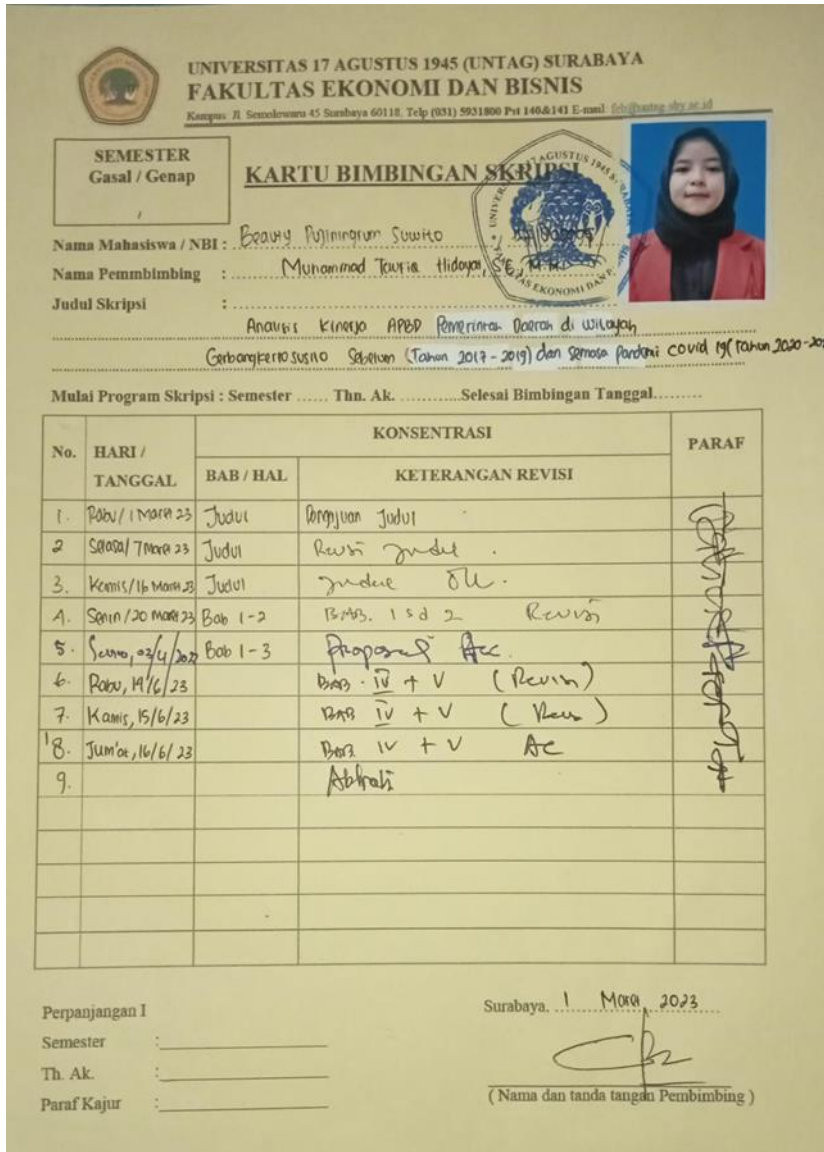 UNIVERSITAS 17 AGUSTUS 1945 (UNTAG) SURABAYA
FAKULTAS EKONOMI DAN BISNIS
Kampus Jl. Semolowaru 45 Surabaya 60118, Telp (031) 5931800 Pst 140&141 E-mail: feb@untag-sby.ac.id
SEMESTER
Gasal / Genap
/
KARTU BIMBINGAN SKRIPSI
Nama Mahasiswa / NBI : Beauty Pujiningrum Suwito
Nama Pemmbimbing : Muhammad Taufiq Hidayat, S.E., M.M.
Judul Skripsi :
Analisis Kinerja APBD Pemerintah Daerah di wilayah
Gerbangkertosusilo Sebelum (Tahun 2017 - 2019) dan Semasa Pandemi covid 19 (Tahun 2020-
Mulai Program Skripsi : Semester ...... Thn. Ak. ............Selesai Bimbingan Tanggal.........
No. HARI / TANGGAL KONSENTRASI PARAF
BAB / HAL KETERANGAN REVISI
1. Rabu / 1 Maret 23 Judul Pengajuan Judul
2 Selasa / 7 Maret 23 Judul Revisi Judul
3. Kamis / 16 Maret 23 Judul Judul OK.
4. Senin / 20 Maret 23 Bab 1-2 BAB. 1 sd 2 Revisi
5. Bab 1-3 Proposal Acc.
6. Rabu, 14/6/23 BAB. IV + V (Revisi)
7. Kamis, 15/6/23 BAB IV + V (Revisi)
8. Jum'at, 16/6/23 BAB IV + V Acc
9.
Perpanjangan I
Semester :
Th. Ak. :
Paraf Kajur :
Surabaya, 1 Maret 2023
( Nama dan tanda tangan Pembimbing )